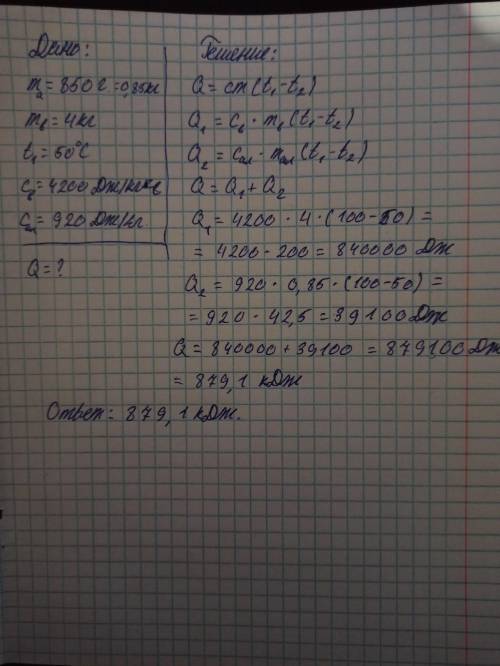 Дано:
mа = 850 г = 0,85кг
mв = 4кг
t₁ = 50°C
c = 4200 Дж/кг
cал = 920 Дж/кг
Q = ?
Решение:
Q = cm(t₁-t₂)
Q₁ = cв · mв (t₁-t₂)
Q₂ = cал · mал (t₁-t₂)
Q = Q₁ + Q₂
Q₁ = 4200 · 4 · (100-50) =
= 4200 · 200 = 840000 Дж
Q₂ = 920 · 0,85 · (100-50) =
= 920 · 42,5 = 39100 Дж
Q = 840000 + 39100 = 879100 Дж
= 879,1 кДж
Ответ: 879,1 кДж.